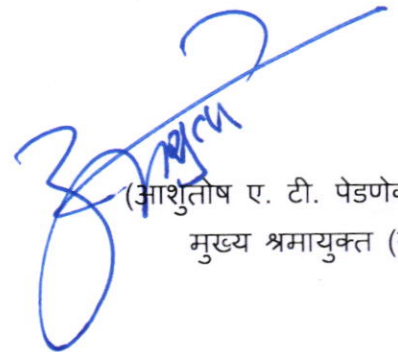 (आशुतोष ए. टी. पेडणे
मुख्य श्रमायुक्त (